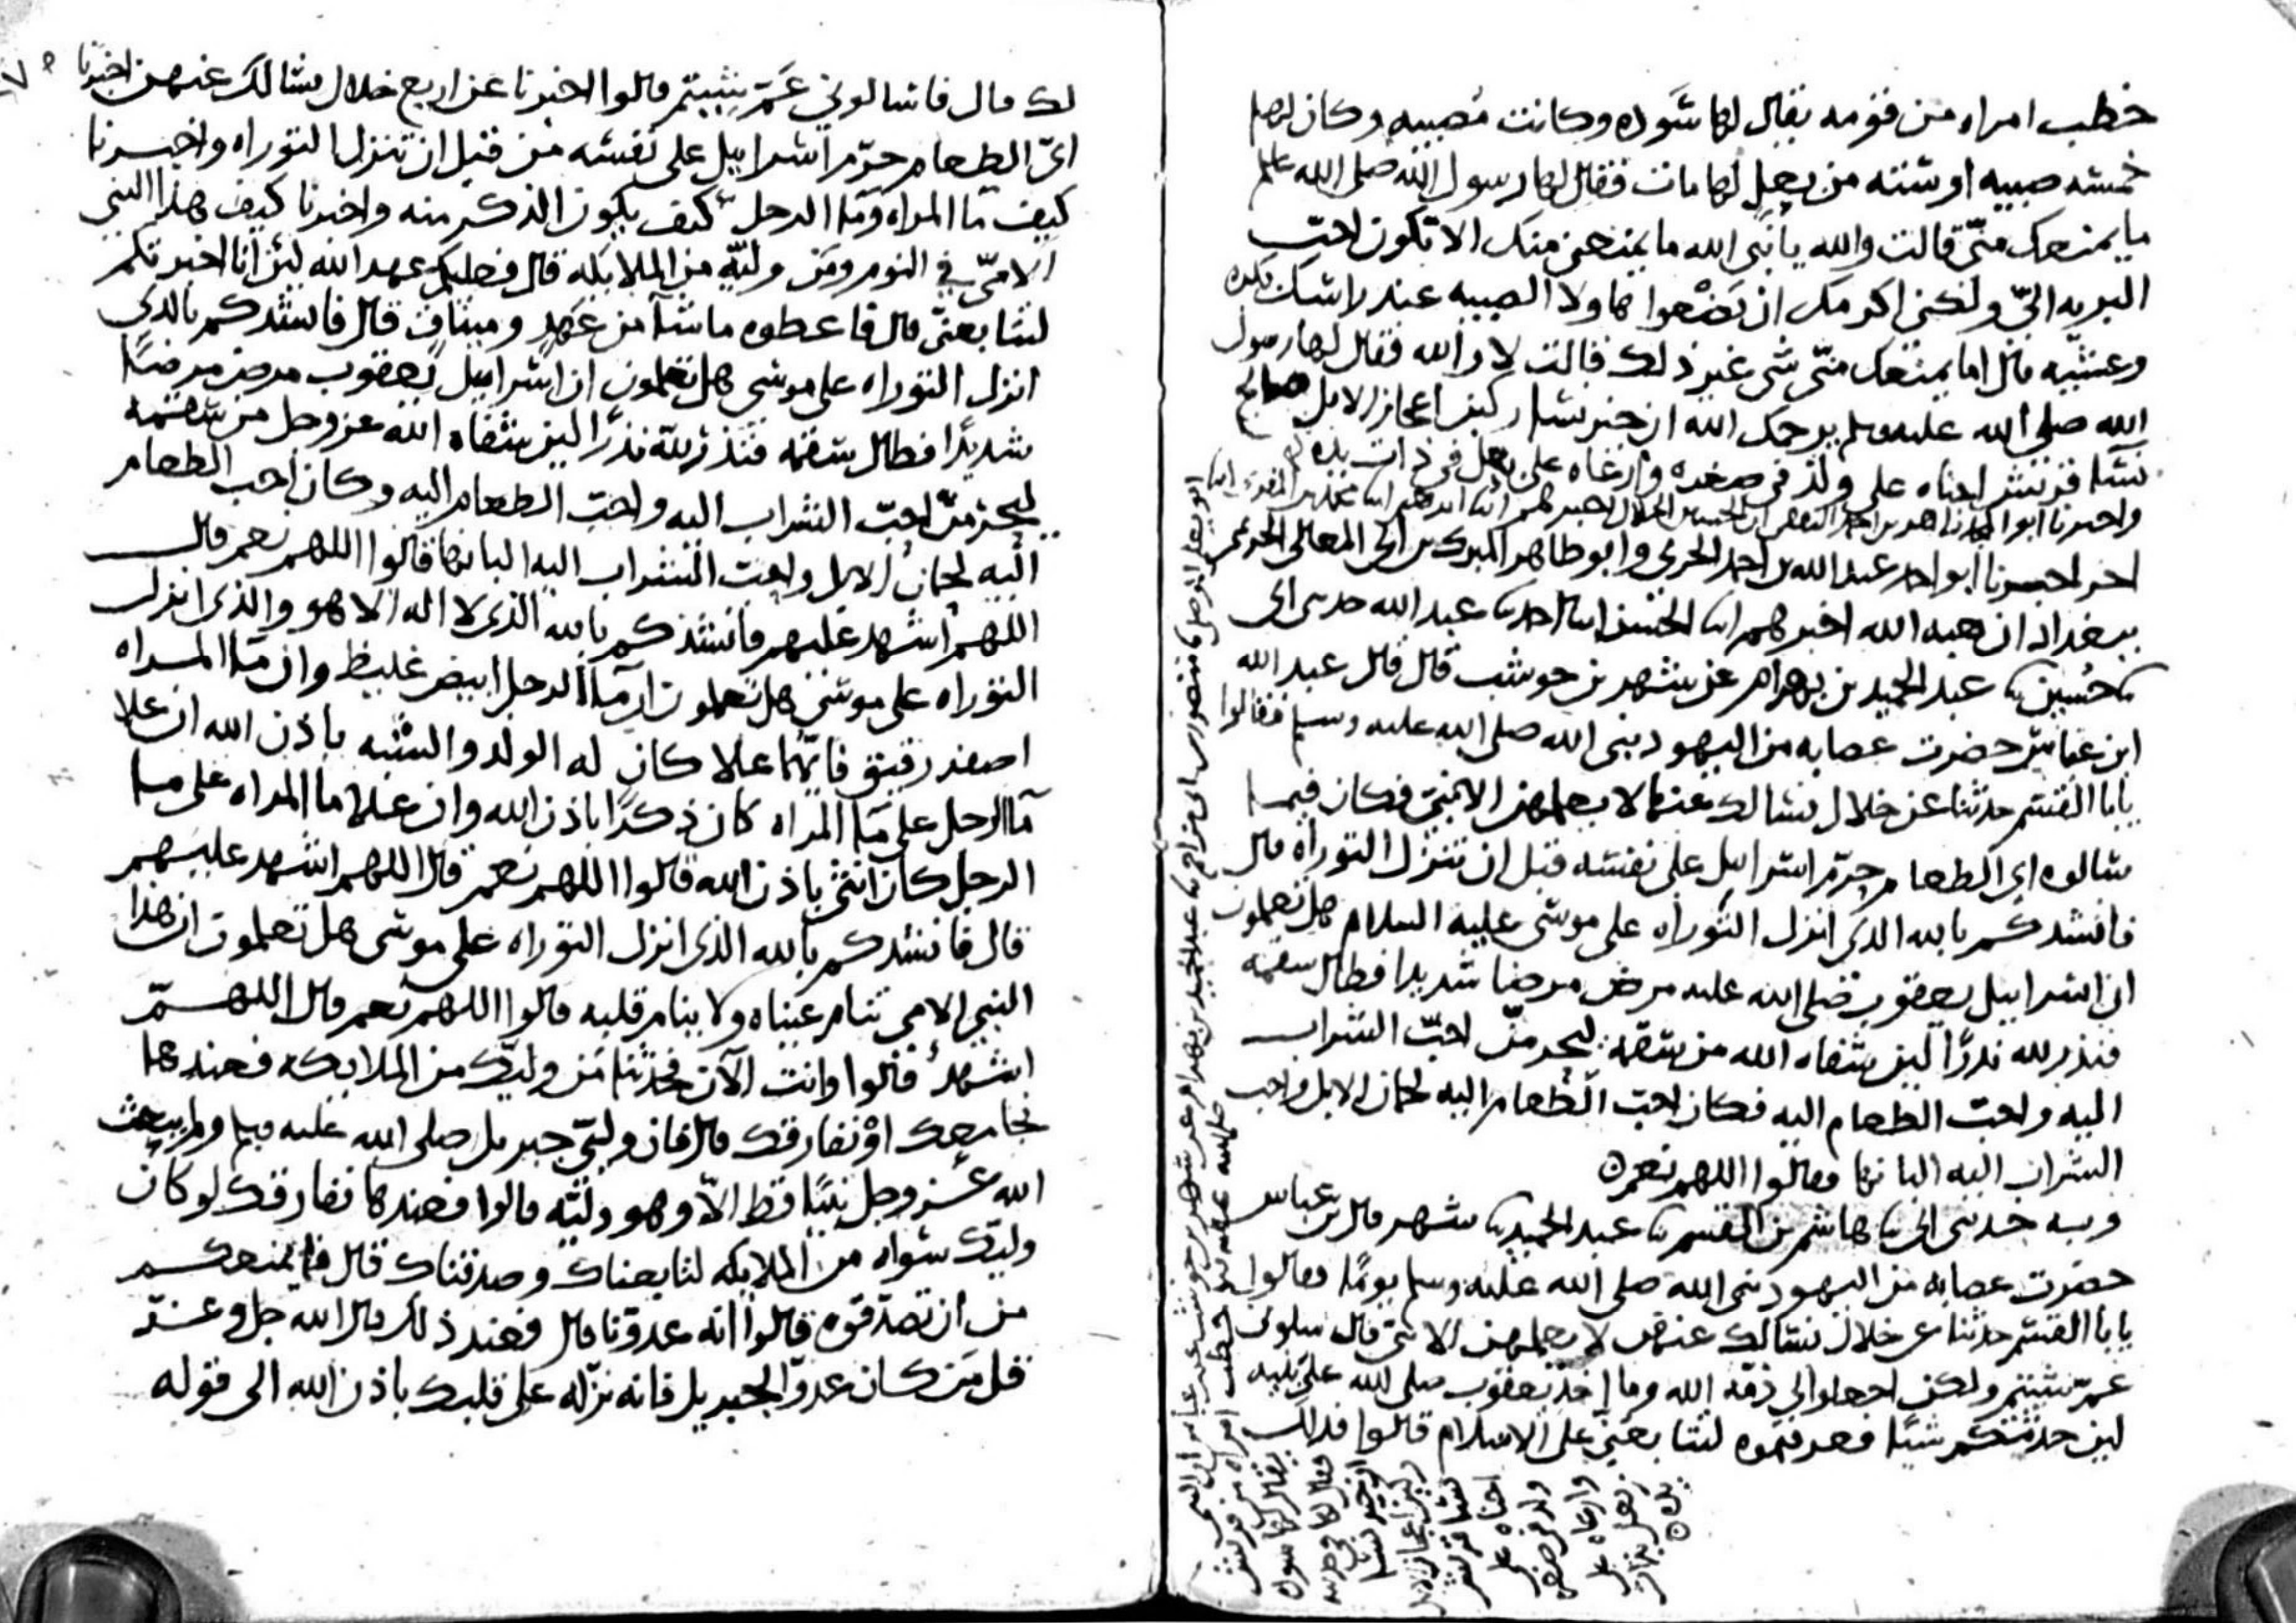 خطب امراه من قومه يقال لها سَوده وكانت مُصبيه وكان لها
خمسه صبيه او سته من بعل لها مات فقال لها رسول الله صلى الله علم
ما يمنعك منّي قالت والله يا نبى الله ما يمنعنى منك الا تكون احبّ
البريه الىّ ولكنى اكرمك ان يَضْغوا هاولا الصبيه عند راسك بكره
وعشيّه قال اما يمنعك منّى شى غير ذلك قالت لا والله فقال لها رسول
الله صلى الله عليه وسلم يرحمك الله ان خير نسا ركبن اعجاز الابل صالح
نسا قريش احناه على ولد فى صغره وارعاه على بعل فى ذات يده
واخبرنا ابو
اخر اخبرنا ابو احمد عبد الله بن احمد الحربي وابو طاهر المبرك بن ابى المعالى الحريمى
ببغداد ان هبه الله اخبرهم ابنا الحسن ابنا احمد ثنا عبد الله حدثنى ابى
ثنا حُسين ثنا عبد الحميد بن بهرام عن شهر بن حوشب قال قال عبد الله
ابن عباس حضرت عصابه من اليهود نبى الله صلى الله عليه وسلم فقالوا
يابا القسم حدثنا عن خلال نسالك عنها لا يعلمهن الا نبىّ فكان فيما
سالوه اى الطعام حرّم اسرايل على نفسه قبل ان تنزل التوراه قال
فانشدكم بالله الذى انزل التوراه على موسى عليه السلام هل تعلمون
ان اسراييل يعقوب صلى الله عليه مرض مرضا شديدا فطال سقمه
فنذر لله نذرًا لين شفاه الله من سقمه ليحرمنّ احبّ الشراب
اليه واحبّ الطعام اليه فكان احبّ الطعام اليه لحمان الابل واحب
الشراب اليه البانها فقالوا اللهم نعم ٥
وبه حدثنى ابى ثنا هاشم بن القسم ثنا عبد الحميد ثنا شهر قال بن عباس
حضرت عصابه من اليهود نبى الله صلى الله عليه وسلم يومًا فقالوا
يابا القسم حدثنا عن خلال نسالك عنهن لا يعلمهن الا نبىّ قال سلونى
عمّ شيتم ولكن اجعلوا لى ذمّه الله وما اخذ يعقوب صلى الله على بنيه
لين حدثتكم شيًا فعرفتموه لتتابعنى على الاسلام قالوا فذلك
لك قال فاسالونى عَمّ شيتم قالوا اخبرنا عن اربع خلال نسالك عنهن اخبرنا
اىّ الطعام حرّم اسراييل على نفسه من قبل ان تنزل التوراه واخبرنا
كيف مَا المراه ومَا الرجل كيف يكون الذكر منه واخبرنا كيف هذا النبي
الامىّ في النوم ومَن وليّه من الملايكه قال فعليكم عهد الله لين انا اخبرتكم
لتتابعنىّ قال فاعطوه ما شآ من عَهدٍ وميثاق قال فانشدكم بالذى
انزل التوراه على موسى هل تعلمون ان اسراييل يَعقوب مرض مرضًا
شديدًا فطال سقمه فنذر للّه نذرًا لين شفاه الله عز وجل من سقمه
ليحرمنّ احبّ الشراب اليه واحبّ الطعام اليه وكان احب الطعام
اليه لحمانُ الابل واحب الشراب اليه البانها قالوا اللهم نعم قال
اللهم اشهد عليهم فانشدكم بالله الذى لا اله الا هو والذى انزل
التوراه على موسى هل تعلمون ان مَآ الرجل ابيض غليظ وان مَآ المراه
اصفر رقيق فايّهما علا كان له الولد والشبه باذن الله ان علا
مَآ الرجل على مَآ المراه كان ذكرًا باذن الله وان علا ما المراه على ما
الرجل كان انثى باذن الله قالوا اللهم نعم قال اللهم اشهد عليهم
قال فانشدكم بالله الذى انزل التوراه على موسى هل تعلمون ان هذا
النبي الامى تنام عيناه ولا ينام قلبه قالوا اللهم نعم قال اللهمّ
اشهد قالوا وانت الآن فحدثنا مَن وليّك من الملايكه فعندها
نجامعك اوْ نفارقك قال فان وليّى جبريل صلى الله عليه وسلم ولم يبعث
الله عز وجل نبيًا قط الاّ وهو وليّه قالوا فعندها نفارقك لو كان
وليّك سواه من الملايكه لتابعناك وصدقناك قال فما يمنعكم
من ان تصدّقوه قالوا انه عدوّنا قال فعند ذلك قال الله جل وعزّ
قل مَن كان عدوّا لجبريل فانه نزّله على قلبك باذن الله الى قوله